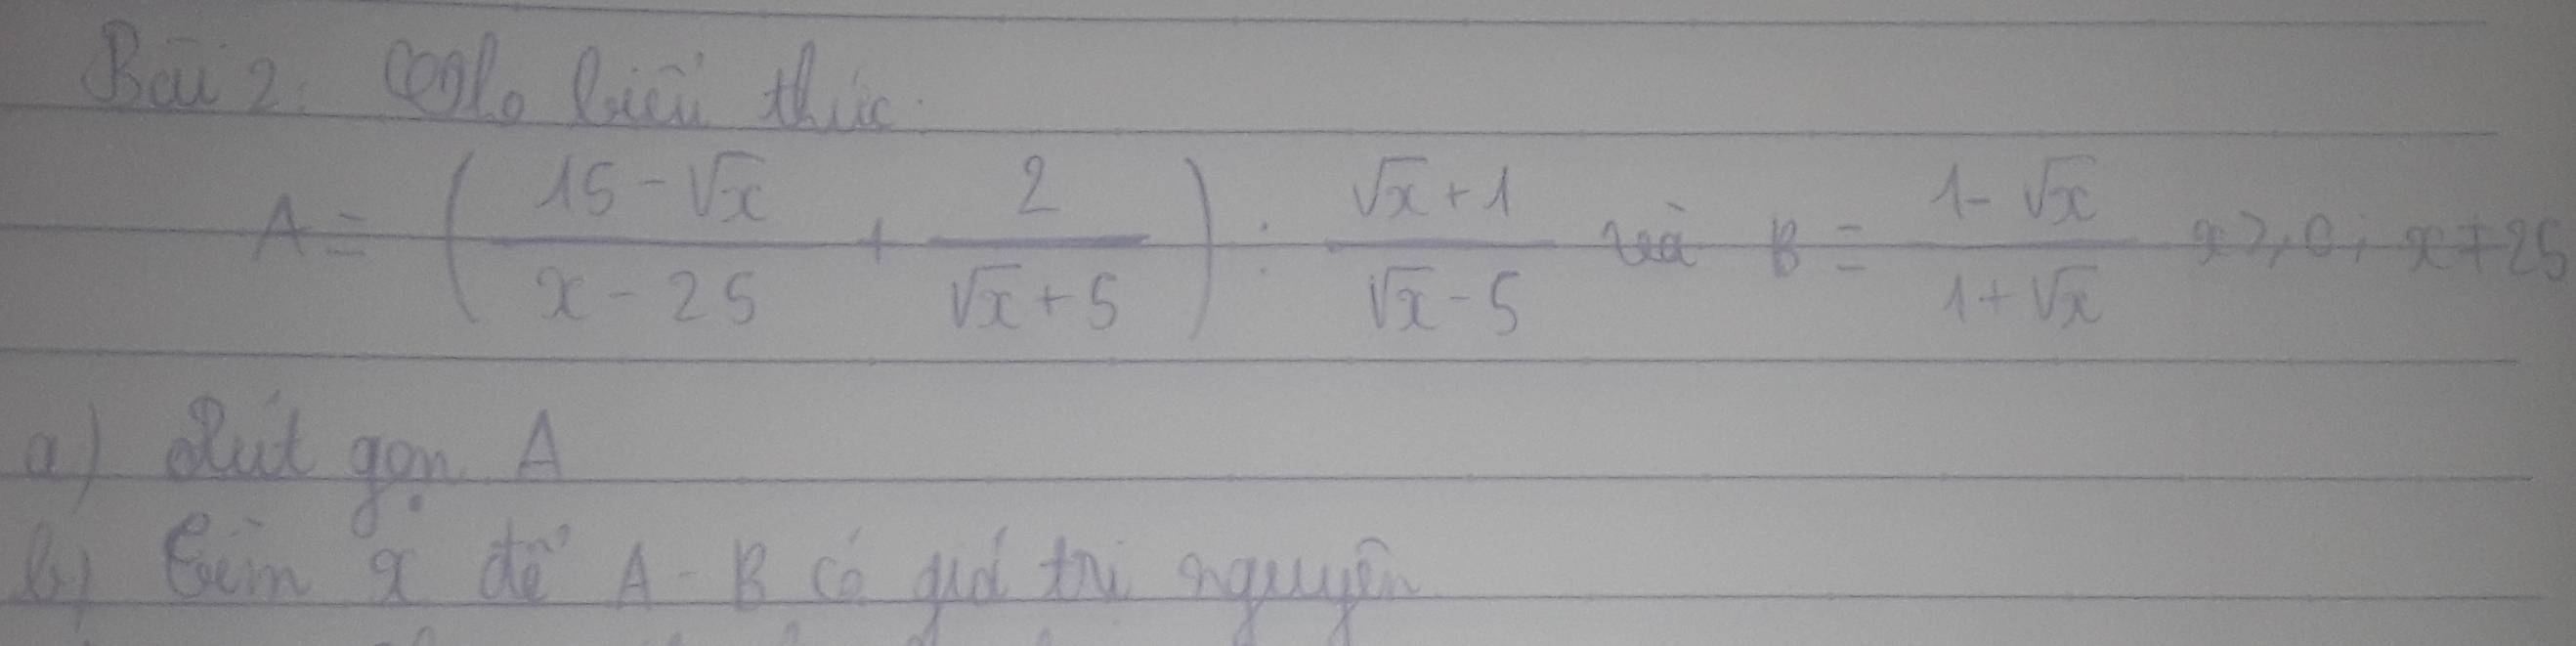 Bài 2: Cho biểu thức.
A = ( (15 - √x)/(x - 25) + 2/(√x + 5) ) : (√x + 1)/(√x - 5) và B = (1 - √x)/(1 + √x) x ≥ 0; x ≠ 25
a) Rút gọn A
b) Tìm x để A - B có giá trị nguyên